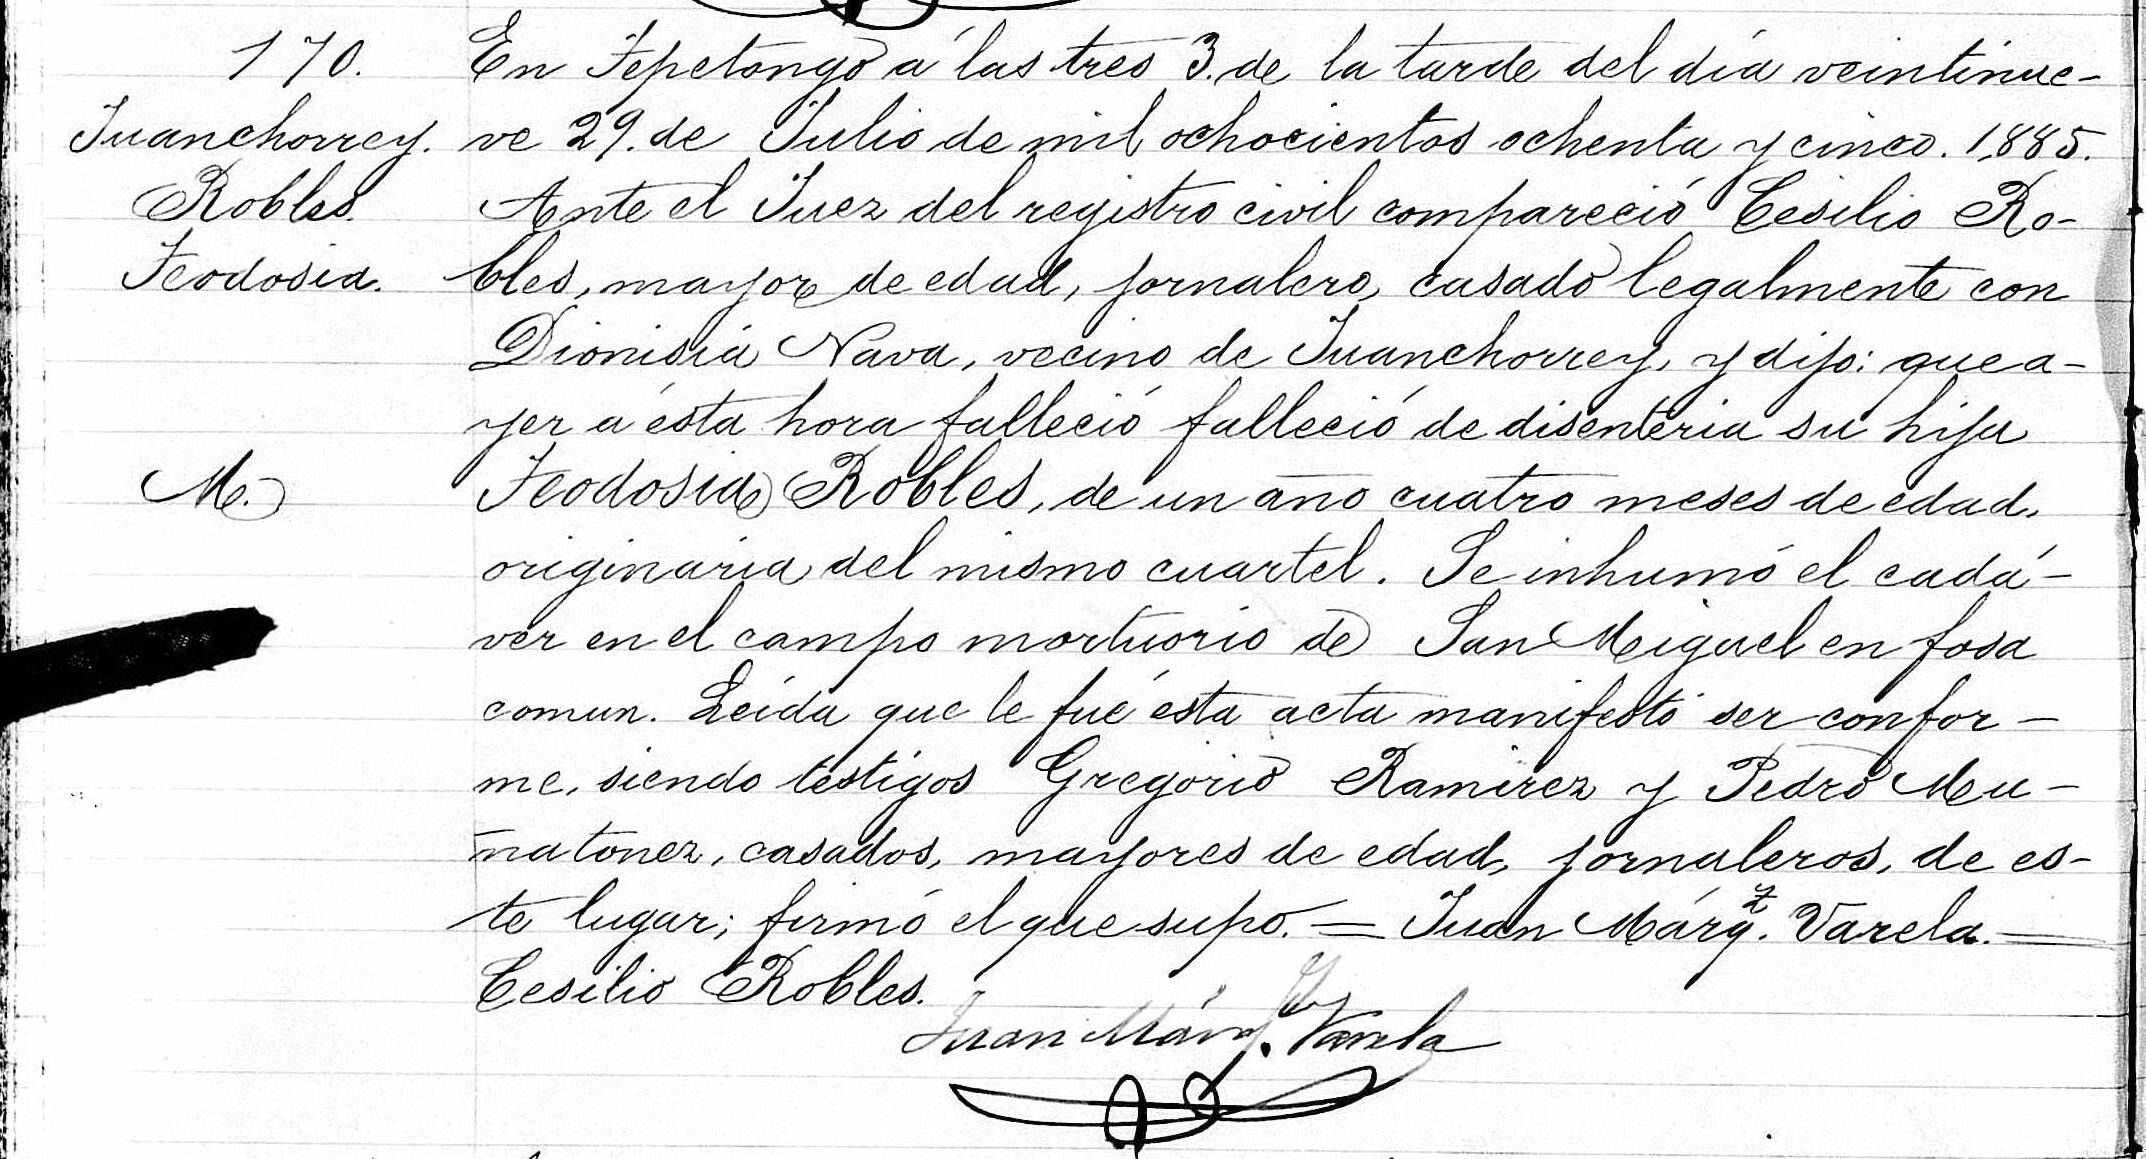 170.
Juanchorrey.
Robles
Teodosia.
M.
En Tepetongo á las tres 3. de la tarde del día veintinue-
ve 29. de Julio de mil ochocientos ochenta y cinco. 1,885.
Ante el Juez del registro civil compareció Cesilio Ro-
bles, mayor de edad, jornalero, casado legalmente con
Dionisia Nava, vecino de Juanchorrey, y dijo: que a-
yer á ésta hora falleció falleció de disenteria su hija
Teodosia Robles, de un año cuatro meses de edad,
originaria del mismo cuartel. Se inhumó el cadá-
ver en el campo mortuorio de San Miguel en fosa
comun. Leída que le fué ésta acta manifestó ser confor-
me, siendo testigos Gregorio Ramirez y Pedro Mu-
ñatonez, casados, mayores de edad, jornaleros, de es-
te lugar; firmó el que supo. = Juan Márqz. Varela. =
Cesilio Robles.
Juan Márqz. Varela